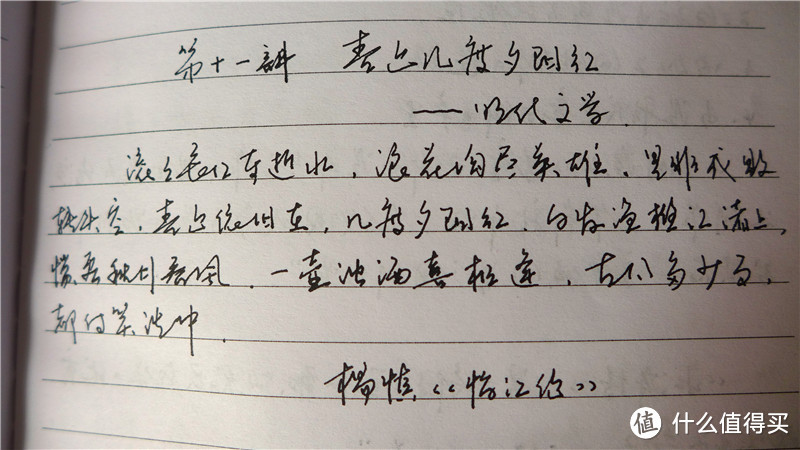 第十一讲 青山几度夕阳红
——明代文学
滚滚长江东逝水，浪花淘尽英雄，是非成败
转头空，青山依旧在，几度夕阳红，白发渔樵江渚上，
惯看秋月春风，一壶浊酒喜相逢，古今多少事，
都付笑谈中．
杨慎《临江仙》
值 什么值得买